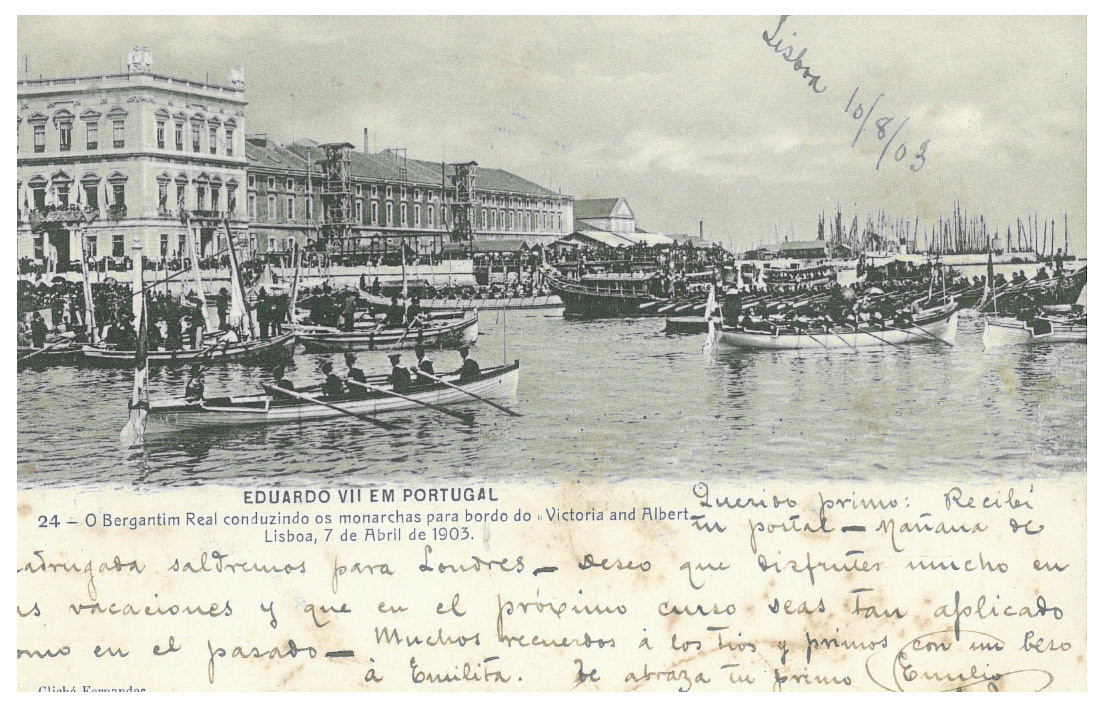 Lisboa
10/8/03
EDUARDO VII EM PORTUGAL
24 – O Bergantim Real conduzindo os monarchas para bordo do „Victoria and Albert
Lisboa, 7 de Abril de 1903.
Querido primo: Recibí
tu postal – Mañana de
adrugada saldremos para Londres – Deseo que disfrutes mucho en
us vacaciones y que en el próximo curso seas tan aplicado
omo en el pasado – Muchos recuerdos á los tios y primos con un beso
á Emilita. Te abraza tu primo Emilio
Cliché Fernandes